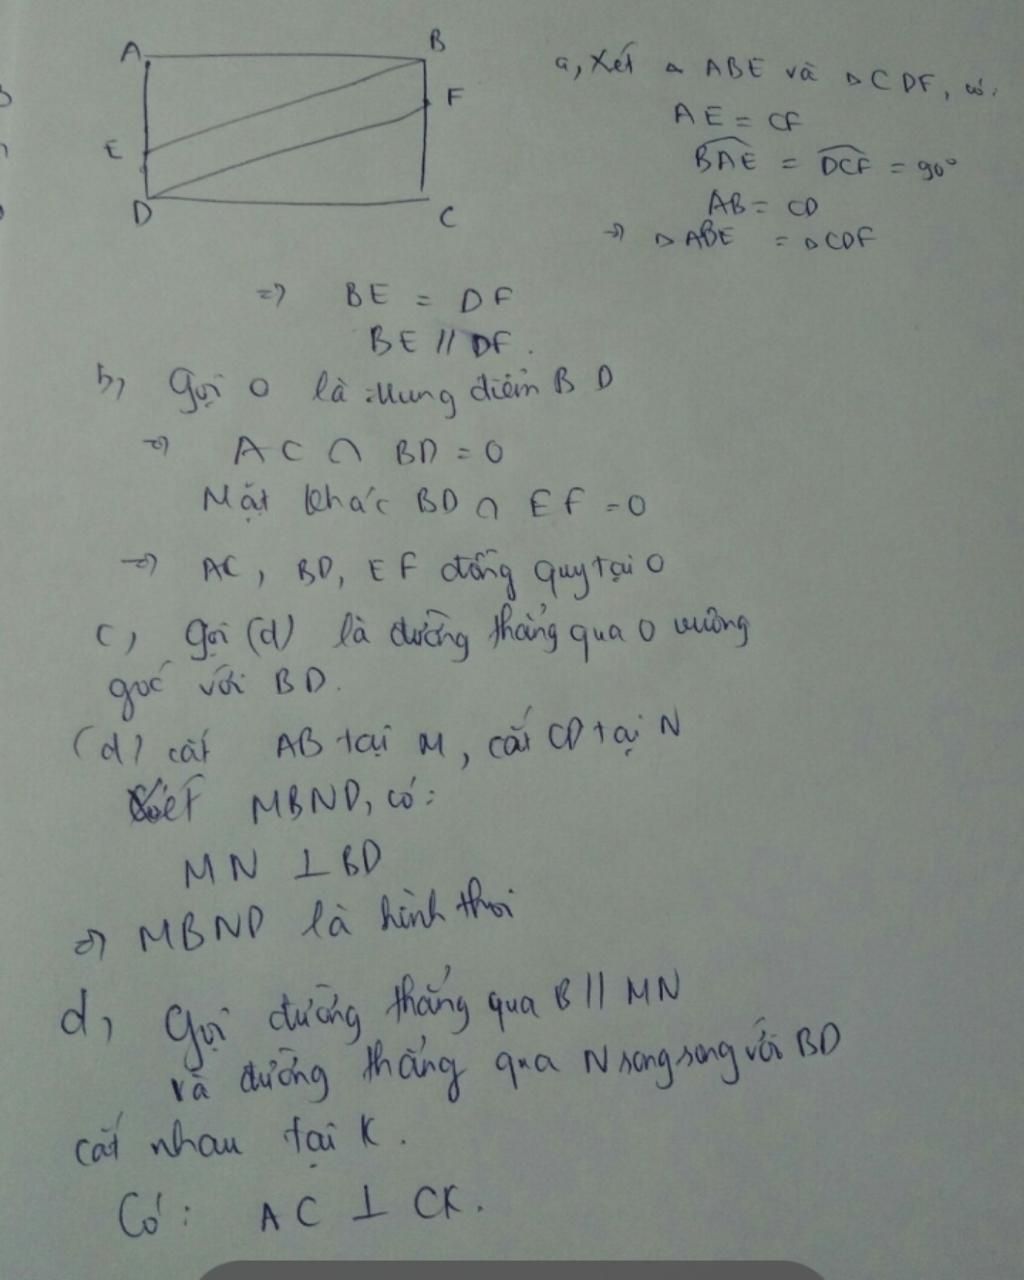 A
B
F
E
D
C
a, Xét △ ABE và △ CDF, có:
AE = CF
BAE = DCF = 90°
AB = CD
=> △ ABE = △ CDF
=> BE = DF
BE // DF.
b, Gọi O là trung điểm BD
=> AC ∩ BD = O
Mặt khác BD ∩ EF = O
=> AC, BD, EF đồng quy tại O
c, Gọi (d) là đường thẳng qua O vuông
góc với BD.
(d) cắt AB tại M, cắt CD tại N
Xét MBND, có:
MN ⊥ BD
=> MBND là hình thoi
d, Gọi đường thẳng qua B // MN
và đường thẳng qua N song song với BD
cắt nhau tại K.
Có: AC ⊥ CK.